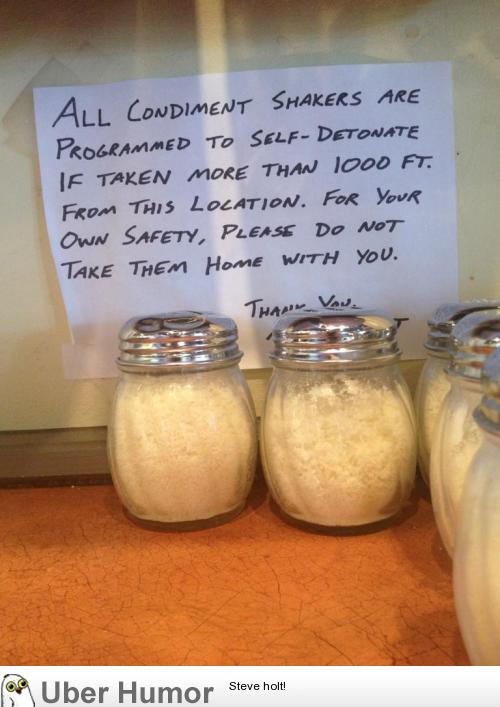 ALL CONDIMENT SHAKERS ARE
PROGRAMMED TO SELF-DETONATE
IF TAKEN MORE THAN 1000 FT.
FROM THIS LOCATION. FOR YOUR
OWN SAFETY, PLEASE DO NOT
TAKE THEM HOME WITH YOU.
THANK YOU.
Uber Humor
Steve holt!